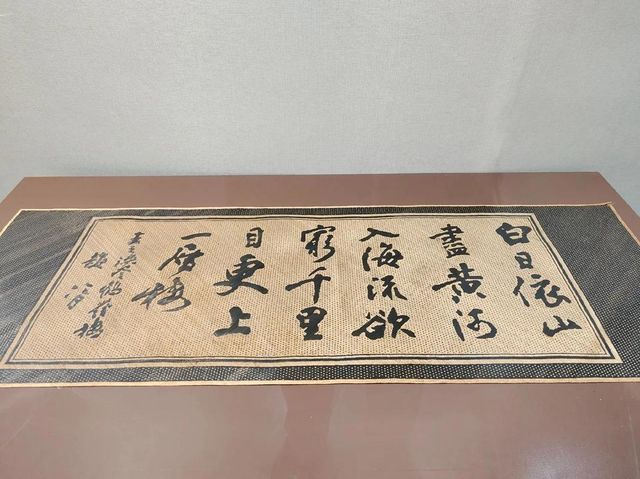 白日依山
盡黄河
入海流欲
窮千里
目更上
一層樓
王之渙登鸛雀樓